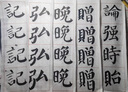 論強時貽
贈贈贈贈
晩晩晩晩
弘弘弘弘
記記記記